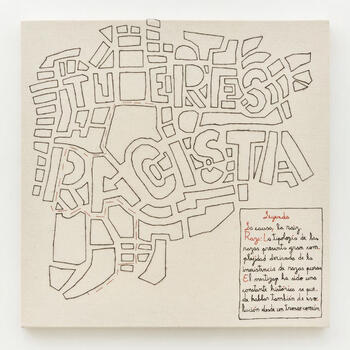 TU ERES
RACISTA
Leyenda
La causa, la raíz.
Raza: La tipología de las
razas presenta gran com-
plejidad derivada de la
inexistencia de razas puras
El mestizaje ha sido una
constante histórica se pue-
de hablar también de evo-
lución desde un tronco común.